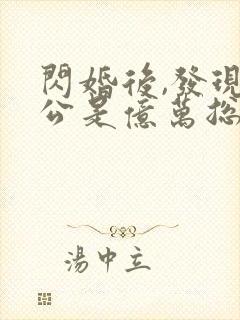 閃婚後,發現
公是億萬总
湯中立